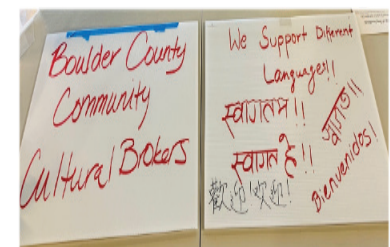 Boulder County
Community
Cultural Brokers
We Support Different
Languages!!
स्वागतम !!
स्वागत हे !!
स्वागत !!
歡迎!欢迎!
Bienvenidos!